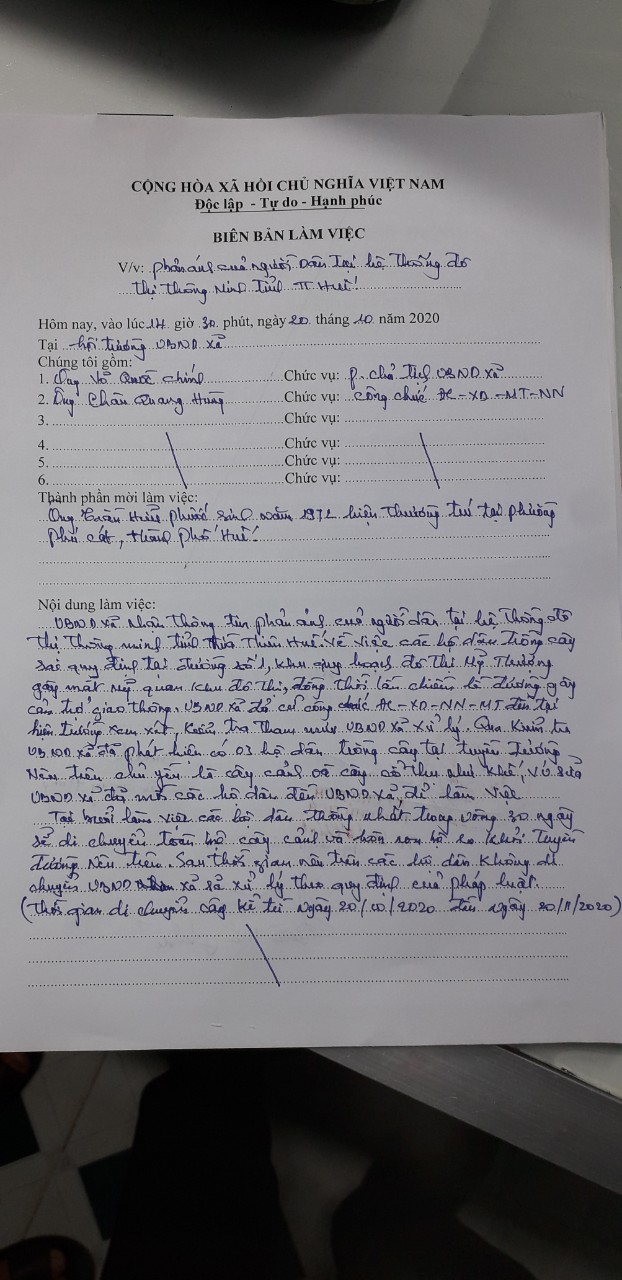 CỘNG HÒA XÃ HỒI CHỦ NGHĨA VIỆT NAM
Độc lập - Tự do - Hạnh phúc
BIÊN BẢN LÀM VIỆC
V/v: phản ánh của người dân tại hệ thống đô
thị thông minh tỉnh TT Huế!
Hôm nay, vào lúc 14 giờ 30 phút, ngày 20 tháng 10 năm 2020
Tại hội trường UBND xã
Chúng tôi gồm:
1. Ông Võ Quốc Chính Chức vụ: P. chủ tịch UBND xã
2. Ông Châu Quang Hùng Chức vụ: công chức ĐC-XD-MT-NN
3. Chức vụ:
4. Chức vụ:
5. Chức vụ:
6. Chức vụ:
Thành phần mời làm việc:
Ông Hữu Phước sinh năm 1972 hiện thường trú tại phường
Phú Cát, thành phố Huế!
Nội dung làm việc:
UBND xã nhận thông tin phản ánh của người dân tại hệ thống đô
thị thông minh tỉnh Thừa Thiên Huế. Về việc các hộ dân trồng cây
sai quy định tại đường số 1, khu quy hoạch đô thị Mỹ Thượng
gây mất mỹ quan khu đô thị, đồng thời lấn chiếm lề đường gây
cản trở giao thông. UBND xã đã cử công chức ĐC-XD-NN-MT đến tại
hiện trường xem xét, kiểm tra tham mưu UBND xã xử lý. Qua kiểm tra
UBND xã đã phát hiện có 03 hộ dân trồng cây tại tuyến đường
nêu trên chủ yếu là cây cảnh và cây cổ thụ như khế, vú sữa
UBND xã đã mời các hộ dân đến UBND xã, để làm việc
Tại buổi làm việc các hộ dân thống nhất trong vòng 30 ngày
sẽ di chuyển toàn bộ cây cảnh và hòn non bộ ra khỏi tuyến
đường nêu trên. Sau thời gian nêu trên các hộ dân không di
chuyển UBND xã sẽ xử lý theo quy định của pháp luật.
(Thời gian di chuyển cây kể từ ngày 20/10/2020 đến ngày 20/11/2020)